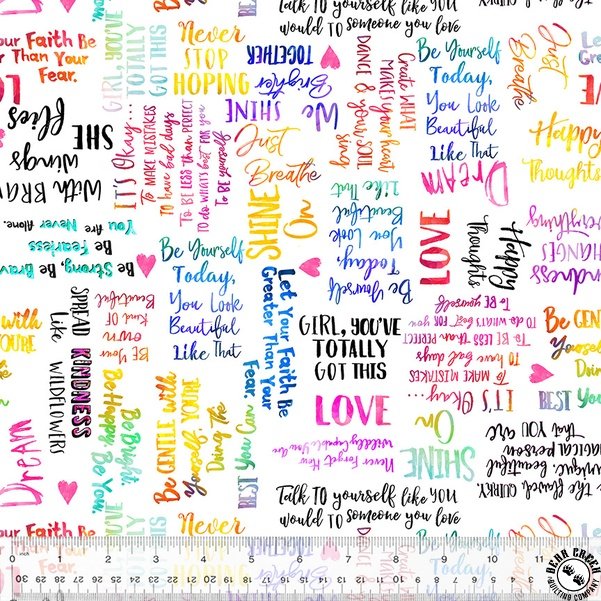 Talk TO yourself like YOU
would TO someone you love
Your Faith Be
Greater Than Your
Fear.
GIRL, YOU'VE
TOTALLY
GOT THIS
Never
STOP
HOPING
We
SHINE
Brighter
TOGETHER
Create WHAT
MAKES YOUR heart
sing
DANCE & YOUR SOUL
Be Yourself
Today,
You Look
Beautiful
Like That
Just
Breathe
Let
Greater
LOVE
SHE
Flies
With BRAVE
wings
IT'S Okay...
To MAKE MISTAKES
To have bad days
To BE LESS than PERFECT
TO do WHAT'S best FOR YOU
TO BE yourself
Just
Breathe
DREAM
Happy
Thoughts
You Are Never Alone.
Be Fearless
Be Strong, Be Brave
SHINE
On
Be Yourself
Today,
You Look
Beautiful
Like That
LOVE
Happy
Thoughts
Kindness
CHANGES
Everything
Be Yourself
Today,
You Look
Beautiful
Like That
Let Your Faith Be
Greater Than Your
Fear.
SPREAD KINDNESS
Like WILDFLOWERS
BE Your
own
Kind OF
Beautiful
GIRL, YOU'VE
TOTALLY
GOT THIS
IT'S Okay...
To MAKE MISTAKES
To have bad days
To BE LESS than PERFECT
TO do WHAT'S best FOR YOU
TO BE yourself
Be GENTLE with
Yourself, YOU'RE
Doing The
BEST You Can
Be GENTLE
Yourself
Doing
BEST YOU
with
YOU'RE
DREAM
Be Bright.
Be Happy. Be You.
LOVE
Never Forget How
Wildly Capable You Are
SHINE
On
the flawed, QUIRKY,
unique, beautiful
MAGICAL person
that YOU are
Talk TO yourself like YOU
would TO someone you love
Your Faith Be
Than Your
Fear.
GIRL, YOU'VE
TOTALLY
GOT THIS
Never
STOP
Brighter
TOGETHER
DANCE
Be Yourself
Today,
Just
Breathe
1 2 3 4 5 6 7 8 9 10 11
30 29
BEAR CREEK
QUILTING COMPANY